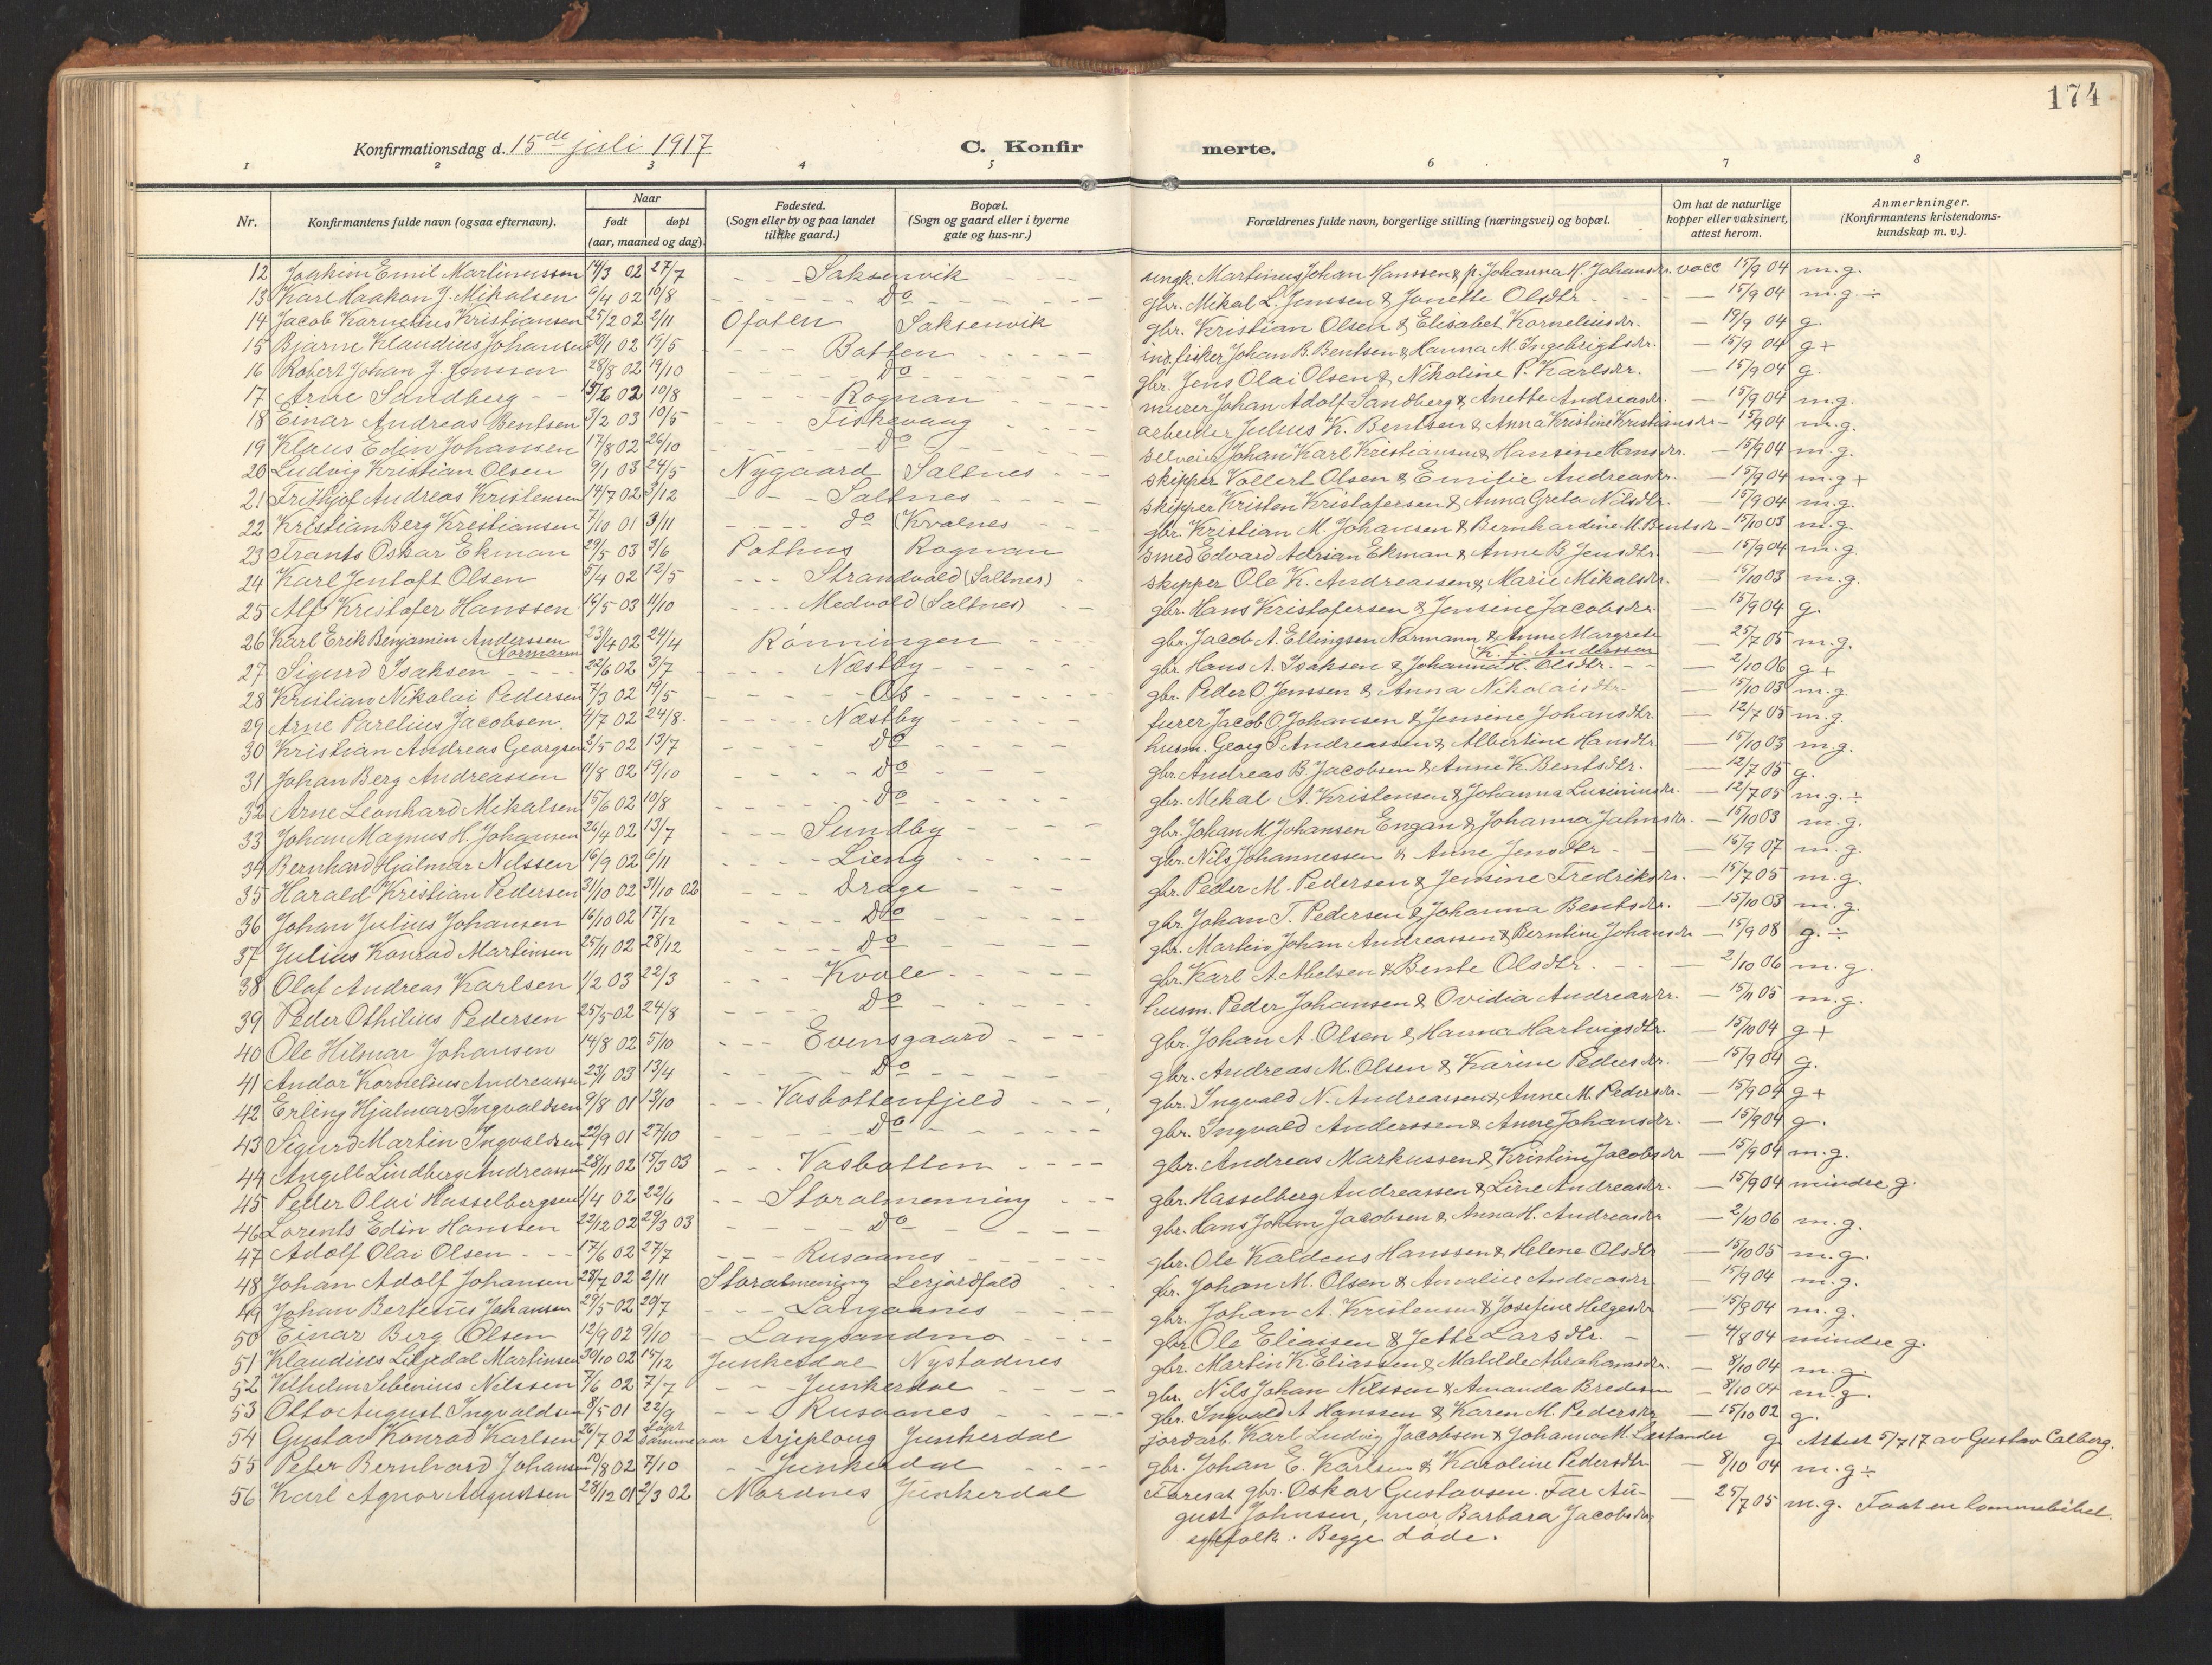 174
Konfirmationsdag d. 15de juli 1917
C. Konfir
merte.
1 2 3 4 5 6 7 8
Nr. Konfirmantens fulde navn (ogsaa efternavn). Naar født døpt (aar, maaned og dag). Fødested. (Sogn eller by og paa landet tillike gaard.) Bopæl. (Sogn og gaard eller i byerne gate og hus-nr.) Forældrenes fulde navn, borgerlige stilling (næringsvei) og bopæl. Om hat de naturlige kopper eller vaksinert, attest herom. Anmerkninger. (Konfirmantens kristendoms-kundskap m. v.).
12 Joakim Emil Martinussen 14/3 02 27/7 - - - Saksenvik - - - ungk. Martinus Johan Hanssen & p. Johanna M. Johansdtr. vacc 15/9 04 m.g.
13 Karl Haakon J. Mikalsen 6/4 02 10/8 - - - Do - - - gbr. Mikal L. Jenssen & Janette Olsdtr. - - - 15/9 04 m.g. ÷
14 Jacob Kornelius Kristiansen 25/2 02 2/11 Ofoten Saksenvik gbr. Kristian Olsen & Elisabet Korneliusdtr. — 19/9 04 g.
15 Bjarne Klaudius Johansen 30/1 02 19/5 - - - Botten - - - ind. fisker Johan B. Bentsen & Hanna M. Ingebrigtsdtr. — 15/9 04 g +
16 Robert Johan J. Jenssen 28/8 02 19/10 - - - Do - - - gbr. Jens Olai Olsen & Nikoline P. Karlsdtr. — 15/9 04 g.
17 Arne Sandberg - - 15/6 02 10/8 - - - Rognan - - - murer Johan Adolf Sandberg & Anette Andreasdtr. — 15/9 04 m.g.
18 Einar Andreas Bentsen 3/2 03 10/5 - - - Fiskevaag - - - arbeider Julius K. Bentsen & Anna Kristine Kristiansdtr — 15/9 04 m.g.
19 Klaus Edin Johansen 17/8 02 26/10 - - - Do - - - selveier Johan Karl Kristiansen & Hansine Hansdtr. — 15/9 04 m.g.
20 Ludvig Kristian Olsen 9/1 03 24/5 Nygaard Saltnes - - skipper Vollert Olsen & Emilie Andreasdtr. — 15/9 04 m.g +
21 Frithjof Andreas Kristensen 14/7 02 3/12 - - - Saltnes - - - skipper Kristen Kristofersen & Anna Greta Nilsdtr. — 15/9 04 m.g.
22 Kristian Berg Kristiansen 7/10 01 3/11 - - - do (Kvalnes - - gbr. Kristian M. Johansen & Bernhardine M. Bentsdtr — 15/10 03 m.g.
23 Frants Oskar Ekman 29/5 03 3/6 Pothus Rognan smed Edvard Adrian Ekman & Anne B. Jensdtr. — 15/9 04 m.g.
24 Karl Jentoft Olsen 5/4 02 12/5 - - - Strandvold (Saltnes) - skipper Ole K. Andreassen & Marie Mikalsdtr. — 15/10 03 m.g.
25 Alf Kristofer Hanssen 16/5 03 11/10 - - - Medvold (Saltnes) - - gbr. Hans Kristofersen & Jensine Jacobsdtr. — 15/9 04 g.
26 Karl Erik Benjamin Anderssen (Normann 23/4 02 24/4 Rønningen - - gbr. Jacob A. Ellingsen Normann & Anne Margrete (K. f. Anderssen — 25/7 05 m.g.
27 Sigurd Isaksen - - - 22/6 02 3/7 - - - Næstby - - - gbr. Hans A. Isaksen & Johanna H. Olsdtr. - - 2/10 06 g +
28 Kristian Nikolai Pedersen 7/3 02 19/5 - - - Os - - - gbr. Peder O Jenssen & Anna Nikolaisdtr. — 15/10 03 m.g.
29 Arne Parelius Jacobsen 4/7 02 24/8. - - - Næstby - - - furer Jacob O Johansen & Jensine Johansdtr. — 12/7 05 m.g.
30 Kristian Andreas Georgsen 2/5 02 13/7 - - - Do - - - husm. Georg S Andreassen & Albertine Hansdtr. — 15/10 03 m.g.
31 Johan Berg Andreassen 11/8 02 19/10 - - - Do - - - gbr. Andreas B. Jacobsen & Anne K. Bentsdtr. — 12/7 05 g.
32 Arne Leonhard Mikalsen 15/6 02 10/8 - - - Do - - - gbr. Mikal A. Kristensen & Johanna Lusiniusdtr. — 12/7 05 m.g. ÷
33 Johan Magnus H. Johansen 26/4 02 13/7 - - - Sundby - - - gbr. Johan M Johansen Engan & Johanna Johnsdtr. — 15/10 03 m.g.
34 Bernhard Hjalmar Nilssen 16/9 02 6/11 - - - Lieng - - - gbr. Nils Johannessen & Anne Jensdtr - - 15/9 07 m.g.
35 Harald Kristian Pedersen 31/10 02 31/10 02 - - - Drage - - - gbr. Peder M. Pedersen & Jensine Fredriksdtr. — 15/7 05 m.g.
36 Johan Julius Johansen 16/10 02 17/12 - - - Do - - - gbr. Johan T. Pedersen & Johanna Bentsdtr. — 15/10 03 m.g.
37 Julius Konrad Martinsen 25/11 02 28/12 - - - Do - - - gbr. Martin Johan Andreassen & Berntine Johansdtr — 15/9 08 g. ÷
38 Olaf Andreas Karlsen 1/2 03 22/3 - - - Kvale - - - gbr. Karl A. Abelsen & Bente Olsdtr. - - 2/10 06 m.g.
39 Peder Othilius Pedersen 25/5 02 24/8 - - - Do - - - husm. Peder Johansen & Ovidia Andreasdtr. — 15/11 05 m.g.
40 Ole Hilmar Johansen 14/8 02 5/10 - - - Evensgaard - - - gbr. Johan A. Olsen & Hanna Hartvigsdtr. — 15/10 04 g +
41 Andor Kornelius Andreassen 23/1 03 13/4 - - - Do - - - gbr. Andreas M. Olsen & Karine Pedersdtr. — 15/9 04 g.
42 Erling Hjalmar Ingvaldsen 9/8 01 13/10 - - - Vasbottenfjeld - - - gbr. Ingvald N. Andreassen & Anne M. Pedersdtr. — 15/9 04 g +
43 Sigurd Martin Ingvaldsen 22/9 01 27/10 - - - Do - - - gbr. Ingvald Anderssen & Anne Johansdtr. — 15/9 04 g.
44 Angell Lindberg Andreassen 28/11 02 15/3 03 - - - Vasbotten - - - gbr. Andreas Markussen & Kristine Jacobsdtr — 15/9 04 m.g.
45 Peder Olai Hasselbergsen 1/4 02 22/6 - - Storalmenning - - - gbr. Hasselberg Andreassen & Line Andreasdtr. — 15/9 04 mindre g.
46 Lorents Edin Hanssen 22/12 02 29/3 03 - - - Do - - - gbr. Hans Johan Jacobsen & Anna H. Andreasdtr — 2/10 06 m.g.
47 Adolf Olai Olsen - - 17/6 02 27/7 - - - Rusaanes - - - gbr. Ole Kaldeus Hanssen & Helene Olsdtr — 15/10 05 m.g.
48 Johan Adolf Johansen 28/7 02 2/11 Storalmening Lerjordfald - - gbr. Johan M. Olsen & Amalie Andreasdtr. — 15/9 04 m.g.
49 Johan Bertenus Johansen 29/5 02 29/7 - - - Langaanes - - - gbr. Johan A. Kristensen & Josefine Helgesdtr — 15/9 04 m.g.
50 Einar Berg Olsen 12/9 02 9/10 - Langsandmo - - - gbr. Ole Eliassen & Jette Larsdtr. - — 4/8 04 mindre g.
51 Klaudius Liljedal Martinsen 30/10 02 15/12 Junkerdal Nystadnes gbr. Martin K. Eliassen & Matilde Abrahamsdtr. — 8/10 04 m.g.
52 Vilhelm Sibenius Nilssen 7/6 02 7/7 - - Junkerdal - - - gbr. Nils Johan Nilssen & Amanda Bredesen — 8/10 04 m.g.
53 Otto August Ingvaldsen 8/5 01 22/9 - - Rusaanes - - - gbr. Ingvald A Hanssen & Karen M. Pedersdtr — 15/10 02 g.
54 Gustav Konrad Karlsen 26/7 02 døpt samme aar Arjeploug Junkerdal jordarb. Karl Ludvig Jacobsen & Johanna M. Læstander g. Attest 5/7 17 av Gustav Calberg.
55 Peter Bernhard Johansen 10/8 02 7/10 - Junkerdal - - - gbr. Johan E. Karlsen & Karoline Pedersdtr — 8/10 04 m.g ÷
56 Karl Agnor Augustsen 28/12 01 2/3 02 Nordnes Junkerdal Foresat gbr. Oskar Gustavsen. Far Au- — 25/7 05 m.g. Faat en lommebibel.
gust Johnsen, mor Barbara Jacobsdtr
egtefolk. Begge døde.